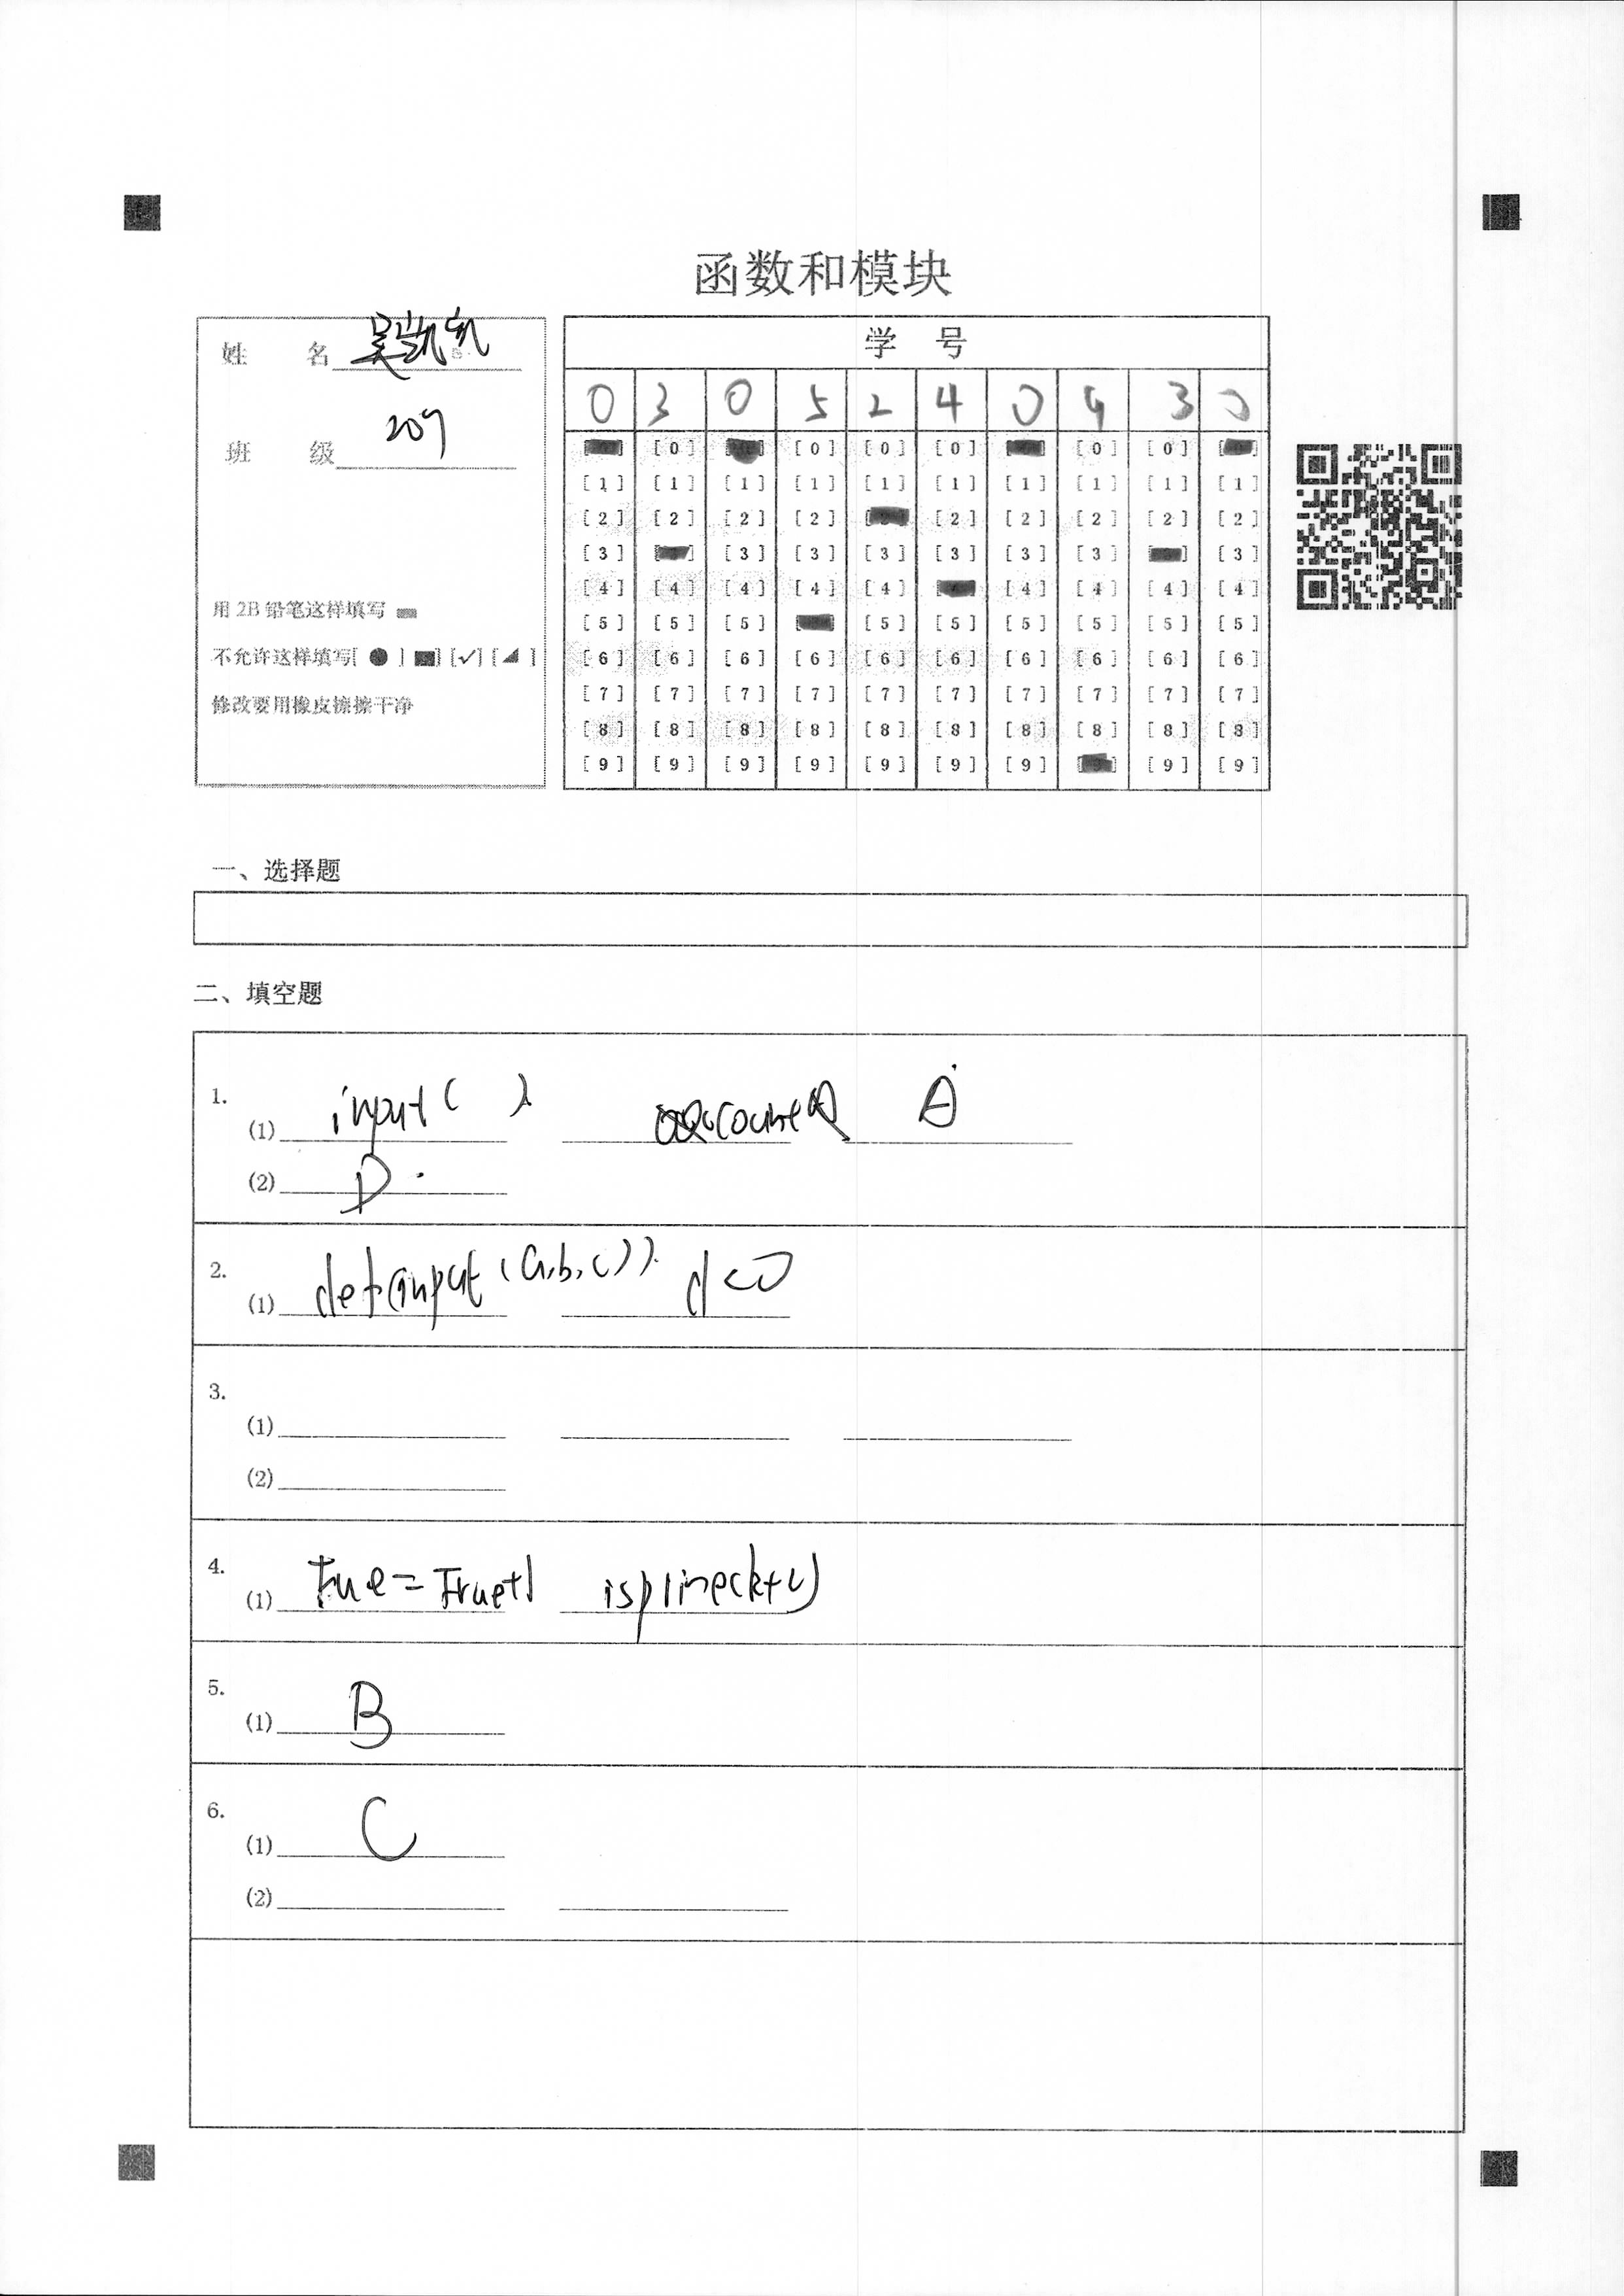 函数和模块
姓 名 吴凯凯
班 级 209
用 2B 铅笔这样填写
不允许这样填写[ ● ] ■] [✓] [◢ ]
修改要用橡皮擦擦干净
学 号
0 3 0 5 2 4 0 9 3 0
[0] [0] [0] [0] [0] [0]
[1] [1] [1] [1] [1] [1] [1] [1] [1] [1]
[2] [2] [2] [2] [2] [2] [2] [2] [2]
[3] [3] [3] [3] [3] [3] [3] [3]
[4] [4] [4] [4] [4] [4] [4] [4] [4]
[5] [5] [5] [5] [5] [5] [5] [5] [5]
[6] [6] [6] [6] [6] [6] [6] [6] [6] [6]
[7] [7] [7] [7] [7] [7] [7] [7] [7] [7]
[8] [8] [8] [8] [8] [8] [8] [8] [8] [8]
[9] [9] [9] [9] [9] [9] [9] [9] [9]
一、选择题
二、填空题
1.
(1) input( ) A
(2) D
2.
(1) def(input(a,b,c)) d<0
3.
(1)
(2)
4.
(1) True=True+1 isprime(k+2)
5.
(1) B
6.
(1) C
(2)